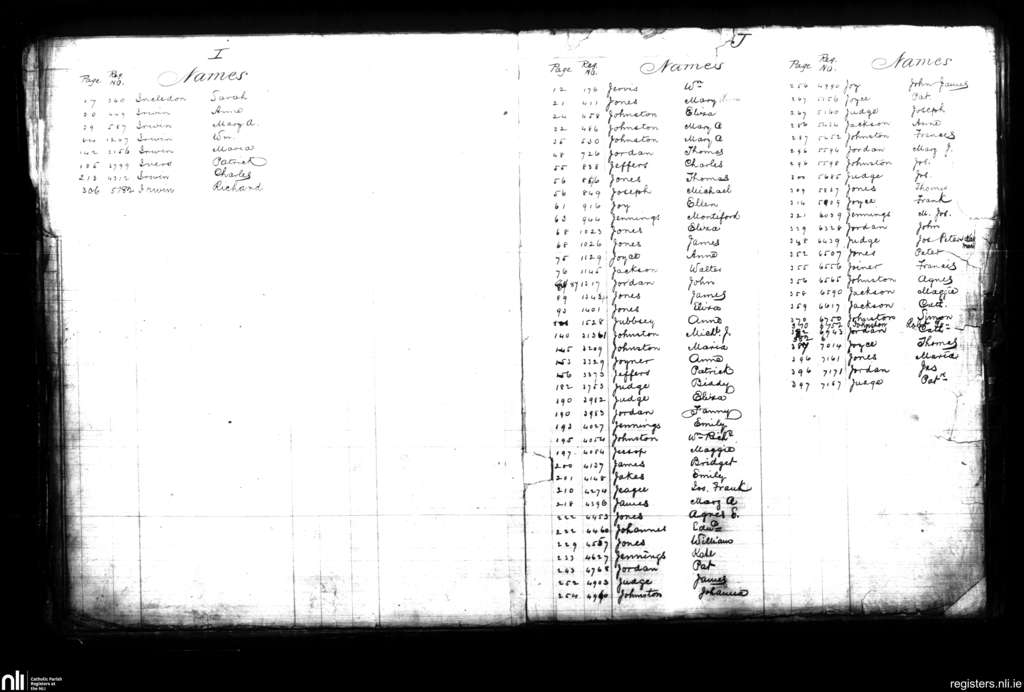 I
Page Reg. No. Names
17 360 Incledon Sarah
20 449 Irwin Anne
39 587 Irwin Mary A.
1247 Irwin Wm
142 3156 Irwin Maria
185 3799 Ivers Patrick
213 4312 Irwin Charles
306 5782 Irwin Richard
J
Page Reg. No. Names
12 176 Jervis Wm
21 411 Jones Mary
24 458 Johnston Eliza
22 486 Johnston Mary A
25 530 Johnston Mary A
48 726 Jordan Thomas
55 838 Jeffers Charles
56 Jones Thomas
56 849 Joseph Michael
61 916 Joy Ellen
63 944 Jennings Monteford
68 1023 Jones Eliza
68 1026 Jones James
75 1129 Joyce Anne
76 1145 Jackson Walter
87 1217 Jordan John
89 Jones James
93 1401 Jones Eliza
1528 Jubbsey Anne
140 Johnston Michl J.
145 3209 Johnston Maria
153 3329 Joyner Anne
156 3373 Jeffers Patrick
182 3753 Judge Biddy
190 3982 Judge Eliza
190 3983 Jordan Fanny
193 4027 Jennings Emily
195 4056 Johnston Wm Richd
197 4084 Jessop Maggie
200 4137 James Bridget
201 4148 Jakes Emily
210 4274 Jos. Frank
218 4396 James Mary A
222 4453 Jones Agnes E.
222 4460 Johannes Edwd
229 4557 Jones William
233 4627 Jennings Kate
243 4768 Jordan Pat
252 4903 Judge James
254 Johnston Johanna
Page Reg. No. Names
256 4990 Joy John James
267 5156 Joyce Pat
267 5160 Judge Joseph
286 5434 Jackson Anne
287 5452 Johnston Frances
296 5594 Jordan Mary J.
296 5598 Johnston Jos.
300 5685 Judge Jos.
309 5837 Jones Thomas
314 Joyce Frank
321 6039 Jennings M. Jos.
339 6328 Jordan John
348 6439 Judge Jos Peter
352 6507 Jones Peter
355 6556 Joiner Francis
356 6565 Johnston Agnes
358 6590 Jackson Maggie
359 6617 Jackson Cath.
370 6750 Johnston Simon
370 6752 Johnston
382 6943 Jordan Cath.
382
387 7014 Joyce Thomas
396 7161 Jones Maria
396 7171 Jordan Jas
397 7167 Judge Patk
nli
Catholic Parish
Registers at
the NLI
registers.nli.ie